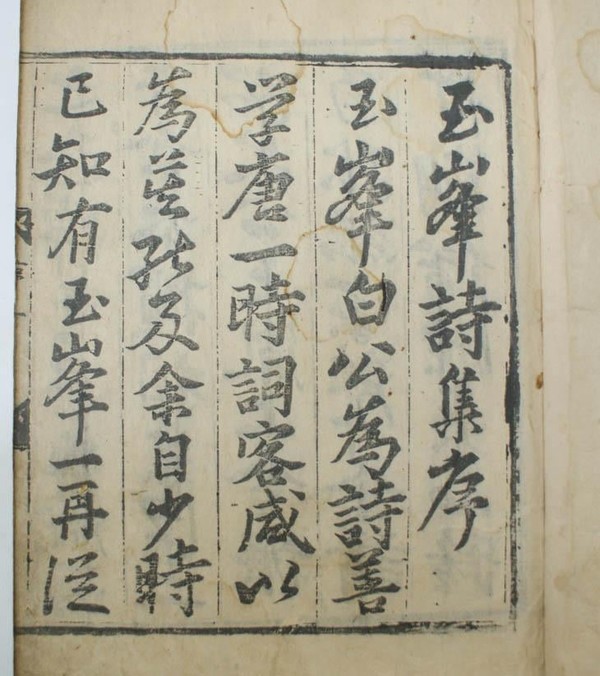 玉峯詩集序
玉峯白公為詩善
学唐一時詞客咸以
為莫能及余自少時
已知有玉峯一再從